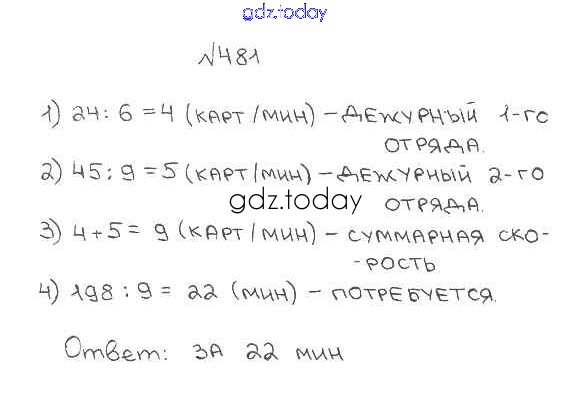 gdz.today
№481
1) 24 : 6 = 4 (КАРТ/МИН) – ДЕЖУРНЫЙ 1-ГО
ОТРЯДА.
2) 45 : 9 = 5 (КАРТ/МИН) – ДЕЖУРНЫЙ 2-ГО
gdz.today ОТРЯДА.
3) 4 + 5 = 9 (КАРТ/МИН) – СУММАРНАЯ СКО-
-РОСТЬ
4) 198 : 9 = 22 (МИН) – ПОТРЕБУЕТСЯ.
Ответ: ЗА 22 МИН